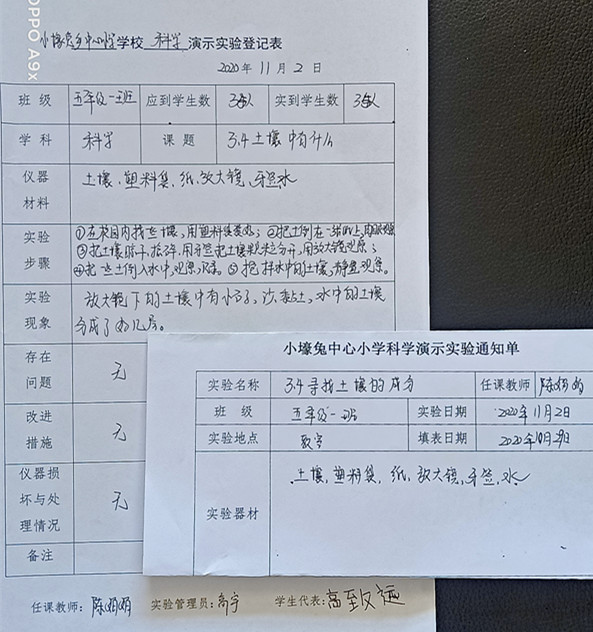 OPPO A9x
小壕兔乡中心小学学校 科学 演示实验登记表
2020年11月2日
班 级 五年级一班 应到学生数 实到学生数
学 科 科学 课 题 3.4土壤中有什么
仪器材料 土壤、塑料袋、纸、放大镜、牙签、水
实验步骤 ①在校园内找些土壤，用塑料袋装好；②把土倒在一张纸上，
③把土壤晾干，捣碎，用牙签把土壤颗粒分开，用放大镜观察；
④把一些土倒入水中，观察，⑤搅拌水中的土壤，静置观察。
实验现象 放大镜下的土壤中有小石子，沙，黏土，水中的土壤
分成了好几层。
存在问题 无
改进措施 无
仪器损坏与处理情况 无
备注
任课教师：陈娟娟 实验管理员：高宇 学生代表：高至
小壕兔中心小学科学演示实验通知单
实验名称 3.4寻找土壤的成分 任课教师 陈娟娟
班 级 五年级一班 实验日期 2020年11月2日
实验地点 教室 填表日期 2020年10月29日
实验器材 土壤，塑料袋，纸，放大镜，牙签，水